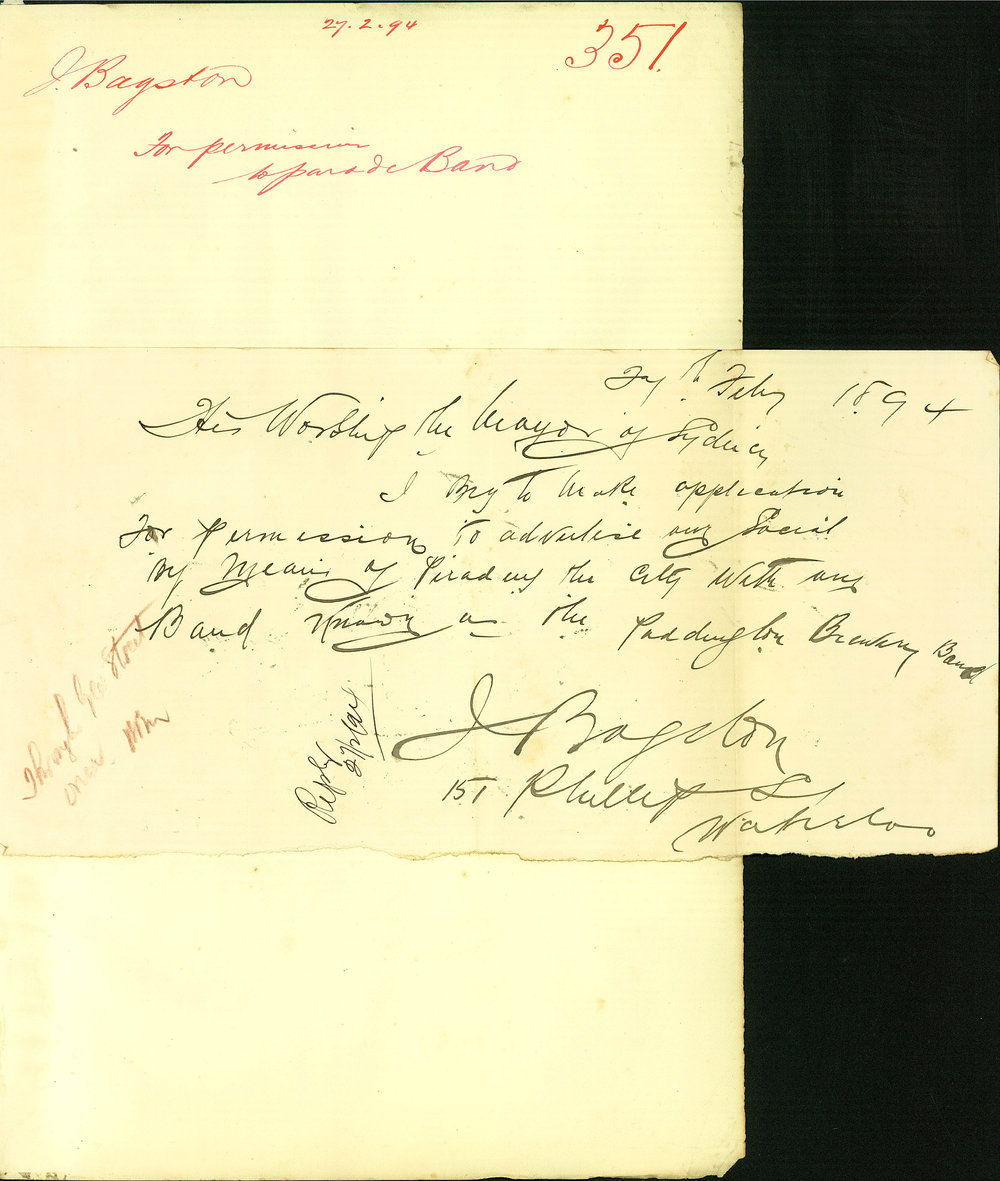 27.2.94
351.
J. Bagston
For permission
to parade Band
27th Feby 1894
His Worship the Mayor of Sydney
I beg to make application
For permission to advertise our Social
by Means of Parading the City With our
Band Known as the Paddington Brewery Band
J Bagston
151 Phillip St
Waterloo
Reply
2/3/94
Through Geo Street
once